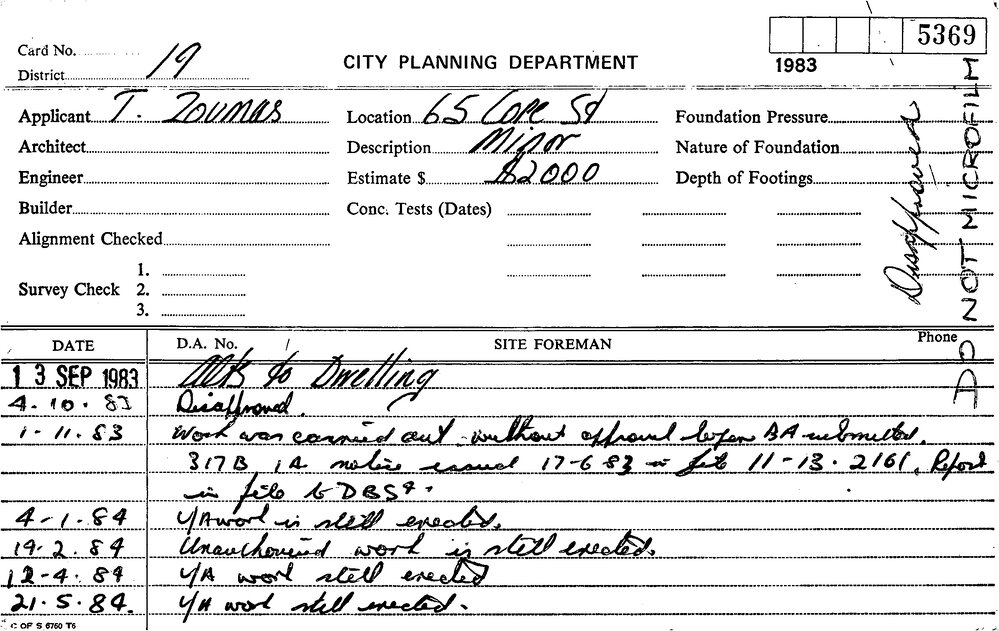 5369
1983
Card No.
District 19
CITY PLANNING DEPARTMENT
Applicant T. Zoumas
Location 65 Cope St
Foundation Pressure
Architect
Description Minor
Nature of Foundation
Engineer
Estimate $ $2000
Depth of Footings
Builder
Conc. Tests (Dates)
Alignment Checked
1.
Survey Check 2.
3.
Disapproved
DO NOT MICROFILM
DATE D.A. No. SITE FOREMAN Phone
13 SEP 1983 Alts to Dwelling
4.10.83 Disapproved.
1-11.83 Work was carried out without approval before BA submitted.
317B 1A notice issued 17-6-83 in file 11-13.2161. Report
in file to DBS
4-1.84 U/A work is still erected.
14.2.84 Unauthorised work is still erected.
12-4.84 U/A work still erected
21.5.84. U/A work still erected.
C OF S 6760 T6